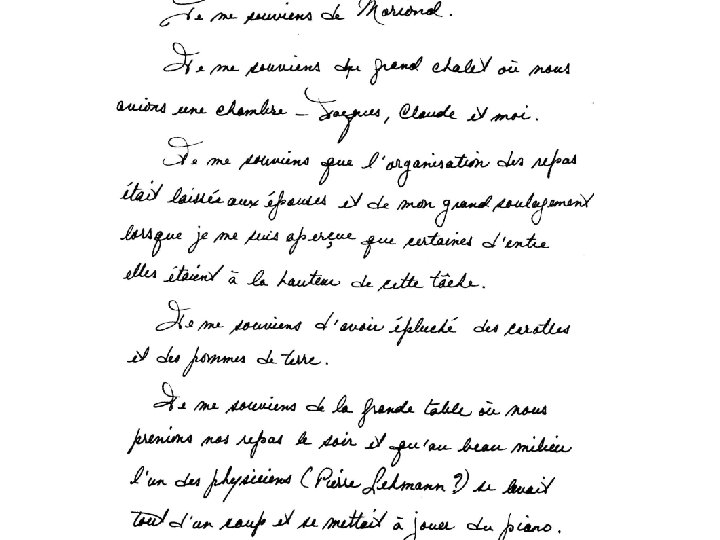 Je me souviens de Moriond.
Je me souviens du grand chalet où nous
avions une chambre – Jacques, Claude et moi.
Je me souviens que l'organisation des repas
était laissée aux épouses et de mon grand soulagement
lorsque je me suis aperçue que certaines d'entre
elles étaient à la hauteur de cette tâche.
Je me souviens d'avoir épluché des carottes
et des pommes de terre.
Je me souviens de la grande table où nous
prenions nos repas le soir et qu'au beau milieu
l'un des physiciens (Pierre Lehmann ?) se levait
tout d'un coup et se mettait à jouer du piano.